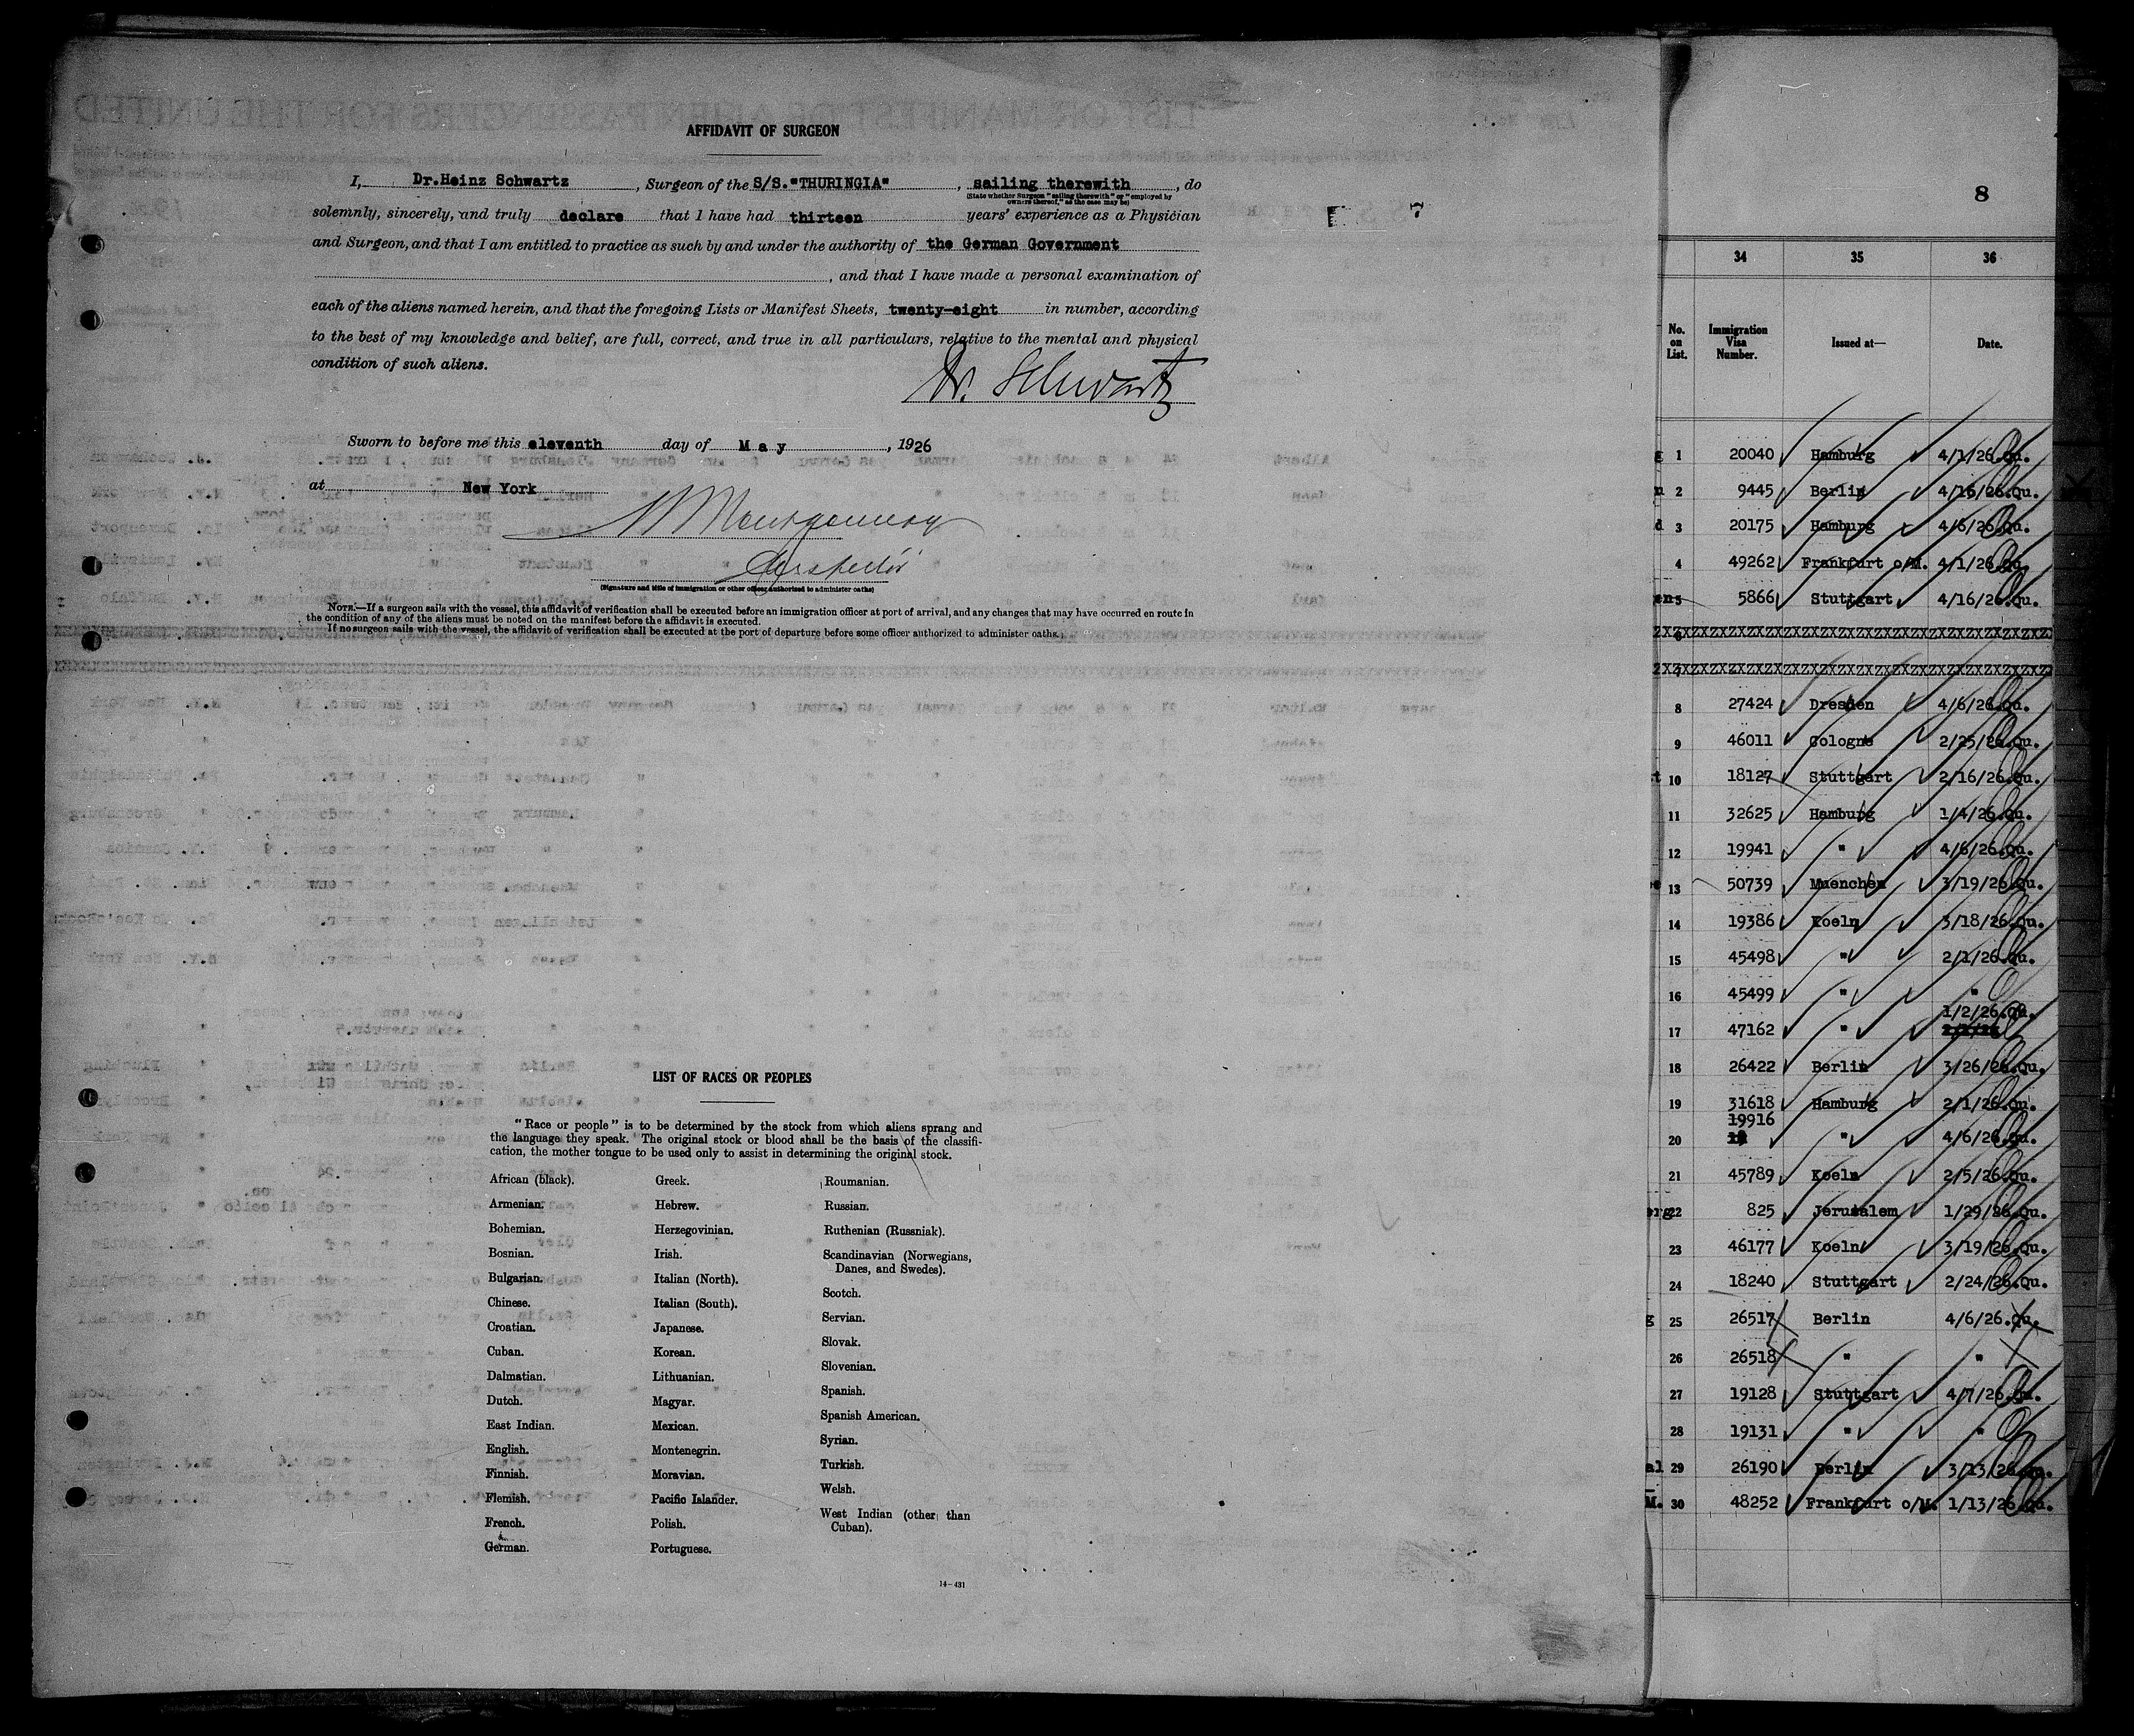 AFFIDAVIT OF SURGEON
I, Dr.Heinz Schwartz, Surgeon of the S/S."THURINGIA", sailing therewith, do
(State whether Surgeon "sailing therewith" or "employed by
owners thereof," as the case may be)
solemnly, sincerely, and truly declare that I have had thirteen years' experience as a Physician
and Surgeon, and that I am entitled to practice as such by and under the authority of the German Government
, and that I have made a personal examination of
each of the aliens named herein, and that the foregoing Lists or Manifest Sheets, twenty-eight in number, according
to the best of my knowledge and belief, are full, correct, and true in all particulars, relative to the mental and physical
condition of such aliens.
Dr. Schwartz
Sworn to before me this eleventh day of May, 1926
at New York
Montgomery
Inspector
(Signature and title of immigration or other officer authorized to administer oaths)
NOTE.—If a surgeon sails with the vessel, this affidavit of verification shall be executed before an immigration officer at port of arrival, and any changes that may have occurred en route in
the condition of any of the aliens must be noted on the manifest before the affidavit is executed.
If no surgeon sails with the vessel, the affidavit of verification shall be executed at the port of departure before some officer authorized to administer oaths.
LIST OF RACES OR PEOPLES
"Race or people" is to be determined by the stock from which aliens sprang and
the language they speak. The original stock or blood shall be the basis of the classifi-
cation, the mother tongue to be used only to assist in determining the original stock.
African (black).
Armenian.
Bohemian.
Bosnian.
Bulgarian.
Chinese.
Croatian.
Cuban.
Dalmatian.
Dutch.
East Indian.
English.
Finnish.
Flemish.
French.
German.
Greek.
Hebrew.
Herzegovinian.
Irish.
Italian (North).
Italian (South).
Japanese.
Korean.
Lithuanian.
Magyar.
Mexican.
Montenegrin.
Moravian.
Pacific Islander.
Polish.
Portuguese.
Roumanian.
Russian.
Ruthenian (Russniak).
Scandinavian (Norwegians,
Danes, and Swedes).
Scotch.
Servian.
Slovak.
Slovenian.
Spanish.
Spanish American.
Syrian.
Turkish.
Welsh.
West Indian (other than
Cuban).
14—431
8
34 35 36
No. on List. Immigration Visa Number. Issued at— Date.
1 20040 Hamburg 4/1/26.Qu.
2 9445 Berlin 4/16/26.Qu.
3 20175 Hamburg 4/6/26.Qu.
4 49262 Frankfurt o/M. 4/1/26.Qu.
5 5866 Stuttgart 4/16/26.Qu.
6
7
8 27424 Dresden 4/6/26.Qu.
9 46011 Cologne 2/25/26.Qu.
10 18127 Stuttgart 2/16/26.Qu.
11 32625 Hamburg 1/4/26.Qu.
12 19941 " 4/6/26.Qu.
13 50739 Muenchen 3/19/26.Qu.
14 19386 Koeln 3/18/26.Qu.
15 45498 " 2/1/26.Qu.
16 45499 " "
1/2/26.Qu.
17 47162 "
18 26422 Berlin 3/26/26.Qu.
19 31618 Hamburg 2/1/26.Qu.
19916
20 " 4/6/26.Qu.
21 45789 Koeln 2/5/26.Qu.
22 825 Jerusalem 1/29/26.Qu.
23 46177 Koeln 3/19/26.Qu.
24 18240 Stuttgart 2/24/26.Qu.
25 26517 Berlin 4/6/26.Qu.
26 26518 " "
27 19128 Stuttgart 4/7/26.Qu.
28 19131 " "
29 26190 Berlin 3/13/26.Qu.
30 48252 Frankfurt o/M. 1/13/26.Qu.